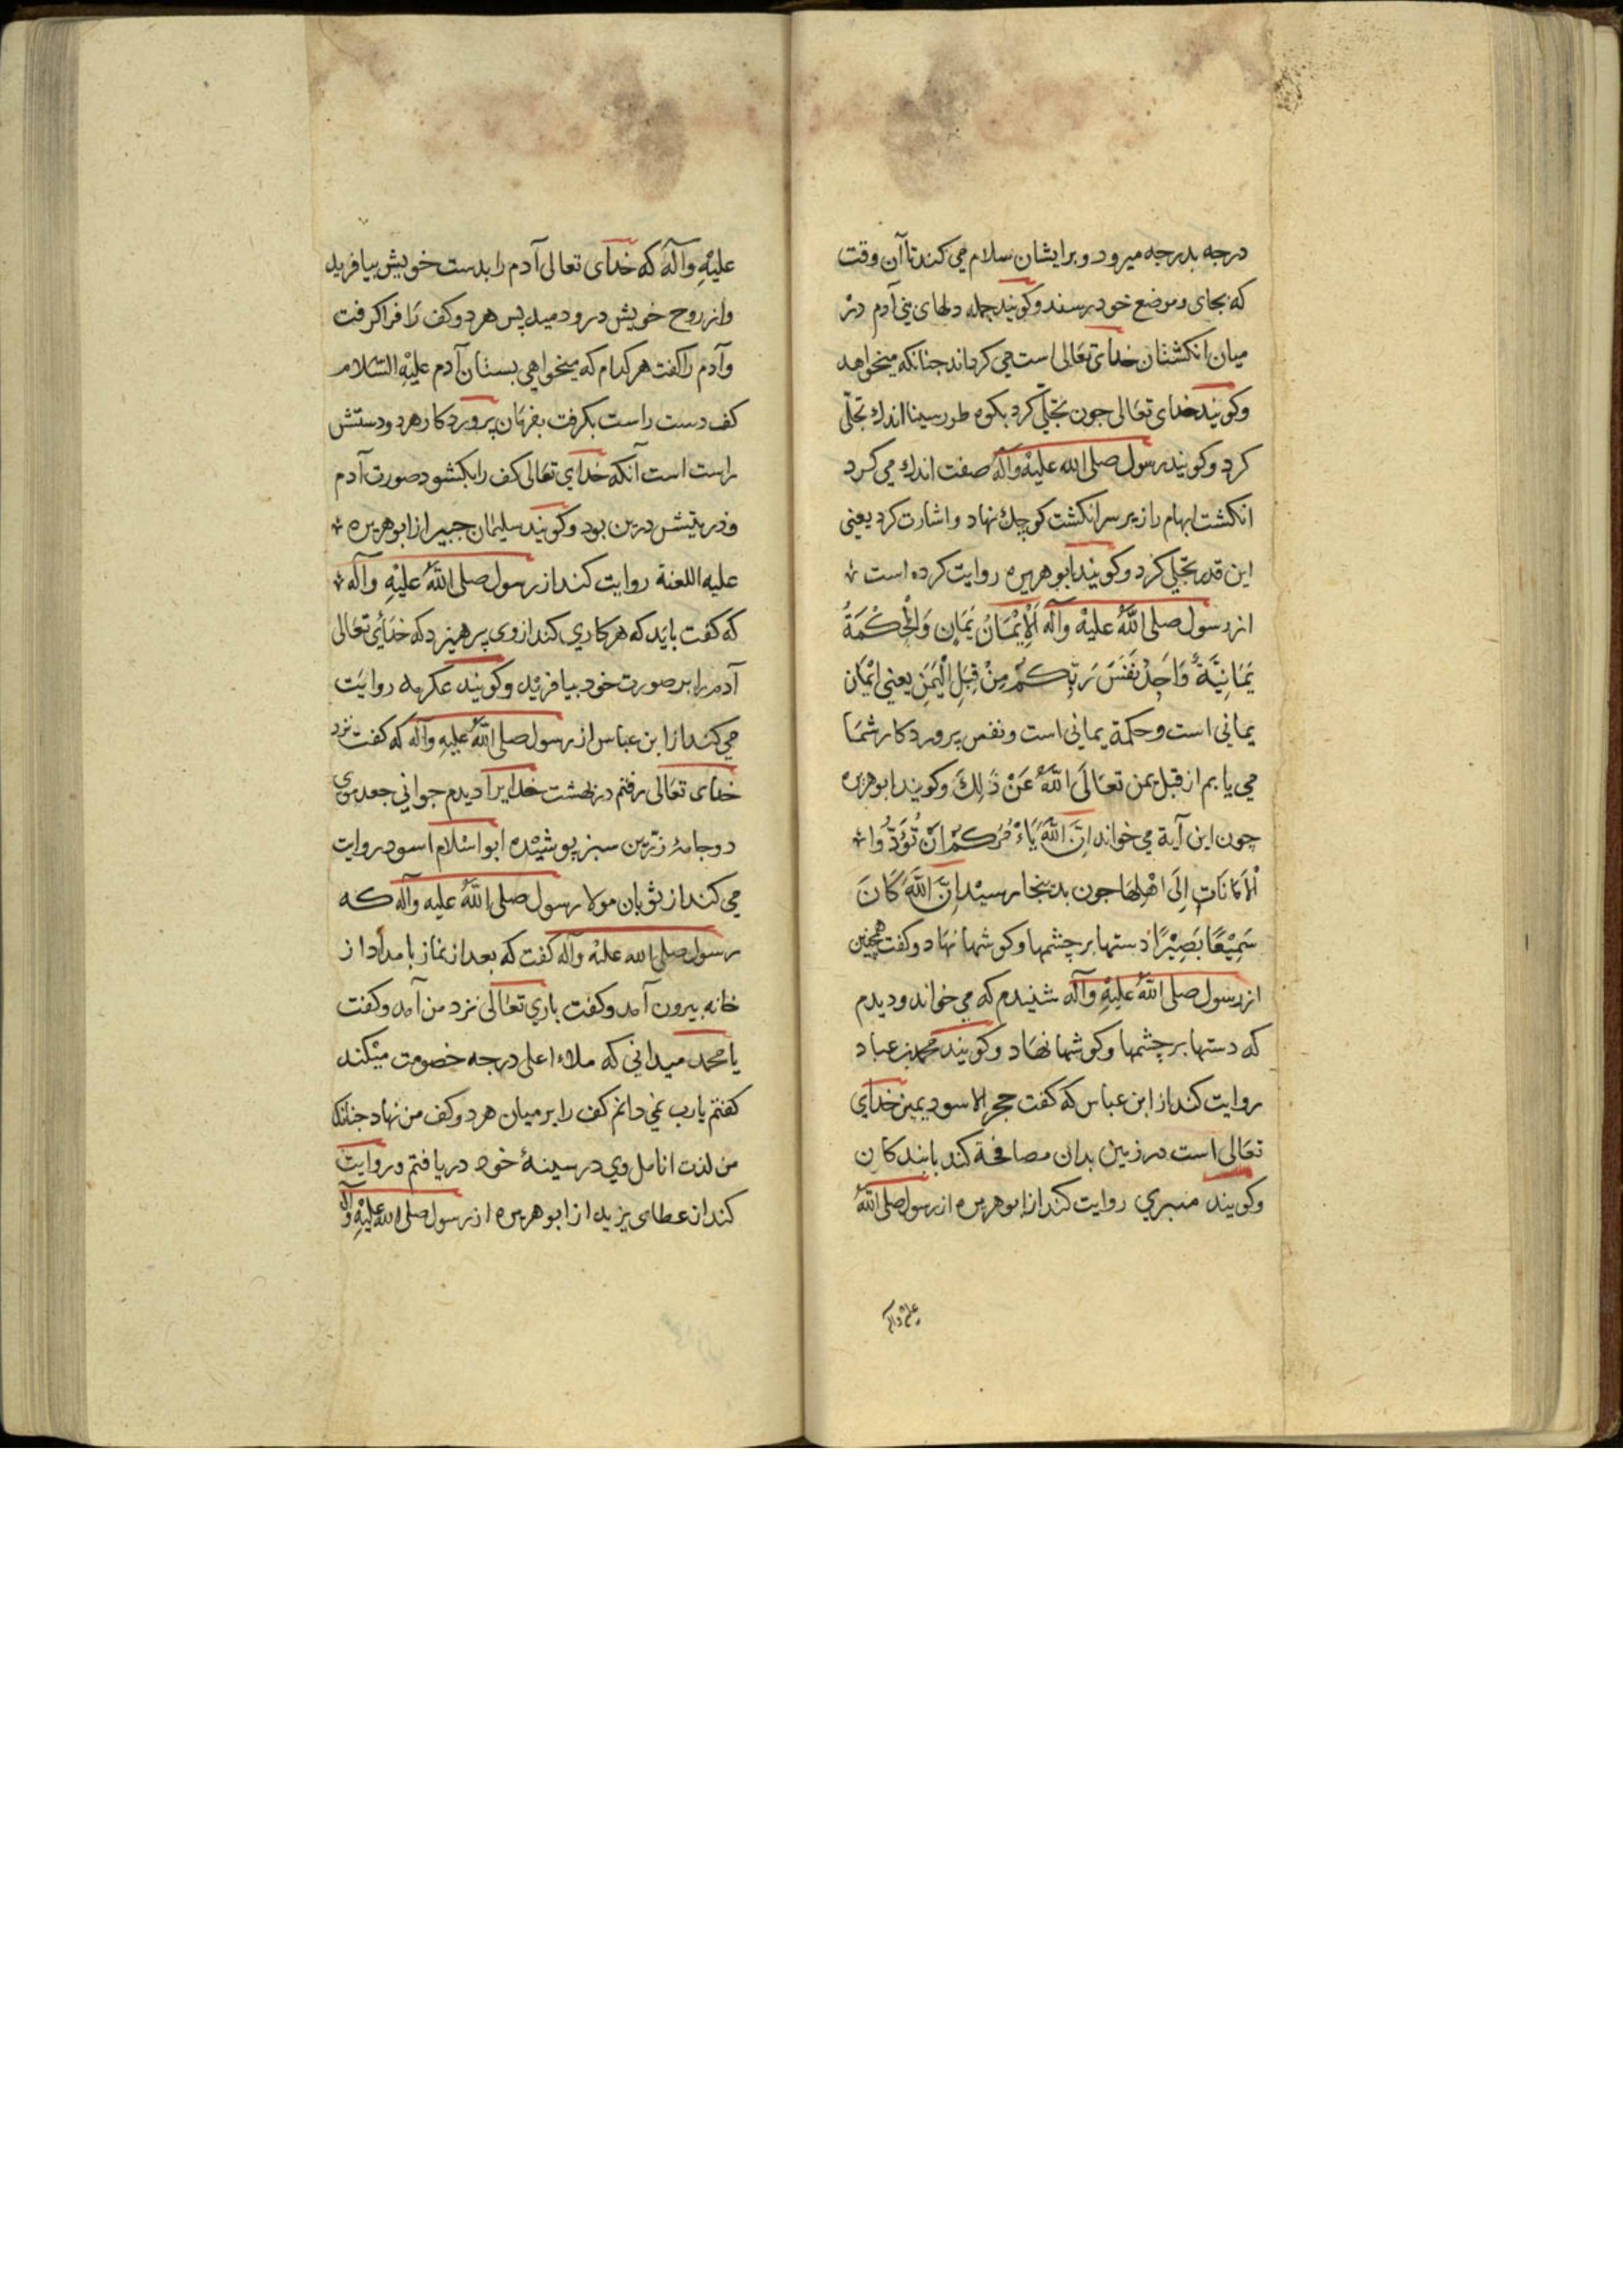 درجه بدرجه میرود و برایشان سلام می کند تا آن وقت
که بجای و موضع خود رسند و کویند جمله دلهای بنی آدم در
میان انکشتان خدای تعالی است می کرداند جنانکه میخواهد
وکویند خدای تعالی جون تجلّی کرد بکوه طور سینا اندك تجلّی
کرد وکویند رسول صلی الله علیه وآله صفت اندك می کرد
انکشت ابهام را زیر سر انکشت کوچك نهاد و اشارت کرد یعنی
این قدر تجلی کرد وکویند ابوهریره روایت کرده است
از رسول صلی اللّه علیه وآله اَلْاِیْمَانُ یَمَانٍ وَالْحِکْمَةُ
یَمَانِیَّةٌ وَاَجِدُ نَفَسَ رَبِّکُمْ مِنْ قِبَلِ الْیَمَنِ یعنی ایمان
یمانی است و حکمة یمانی است و نفس پروردکار شما
می یابم از قبل یمن تعالَی اللّهُ عَنْ ذَلِكَ وکویند ابوهریره
چون این آیة می خواند اِنَّ اللّهَ یَاْمُرُکُمْ اَنْ تُؤَدُّوا
اْلاَمَانَاتِ اِلَی اَهْلِهَا جون بدینجا رسید اِنَّ اللّهَ کَانَ
سَمِیْعًا بَصِیْرًا دستها بر چشمها وکوشها نهاد وکفت همچنین
از رسول صلی اللّه علیه وآله شنیدم که می خواند و دیدم
که دستها بر چشمها وکوشها نهاد وکویند محمد بن عباد
روایت کند از ابن عباس که کفت حجر الاسود یمین خدای
تعالی است در زمین بدان مصافحة کند با بندکان
وکویند منبری روایت کند از ابوهریره از رسول صلی اللّه
علیه وآله
علیْهِ وآله که خدای تعالی آدم را بدست خویش بیافرید
واز روح خویش درو دمید پس هر دو کف را فراکرفت
وآدم را کفت هر کدام که میخواهی بستان آدم علیْهِ السّلام
کف دست راست بکرفت بفرمان پروردکار هر دو دستش
راست است آنکه خدای تعالی کف را بکشود صورت آدم
وذریتش درین بود وکویند سلیمان جبیر از ابوهریره
علیه اللعنة روایت کند از رسول صلی اللّهُ علیْهِ وآله
که کفت باید که هر کاری کند از وی پرهیزد که خدای تعالی
آدم را بر صورت خود بیافرید وکویند عکرمه روایت
می کند از ابن عباس از رسول صلی اللّه علیه وآله که کفت نزد
خدای تعالی رفتم در بهشت خدایرا دیدم جوانی جعد موی
دو جامهٔ زرّین سبز پوشیده ابو اسلام اسود روایت
می کند از ثوبان مولا رسول صلی اللّه علیه وآله که
رسول صلی الله علیه وآله کفت که بعد از نماز بامداد از
خانه بیرون آمد وکفت باری تعالی نزد من آمد وکفت
یا محمد میدانی که ملاء اعلی درجه خصومت میکند
کفتم یارب نمی دانم کف را بر میان هر دو کف من نهاد جنانکه
من لذت انامل وی در سینهٔ خود دریافتم و روایت
کند از عطای یزید از ابوهریره از رسول صلی الله علیْهِ وآله